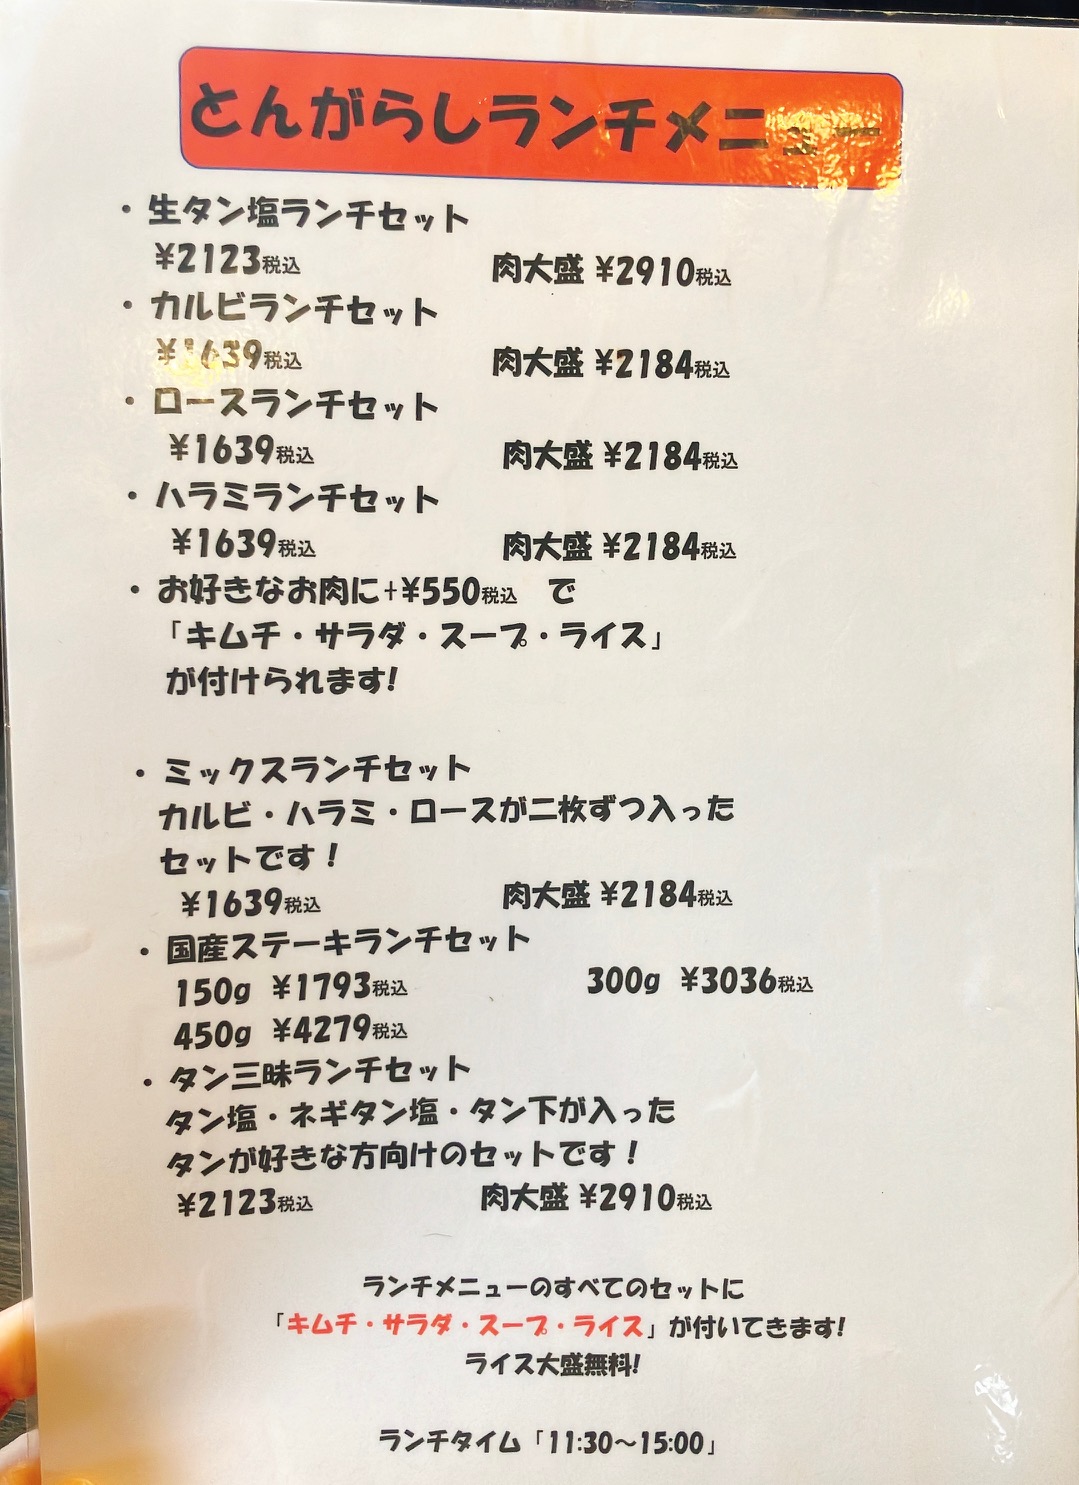 とんがらしランチメニュー
・生タン塩ランチセット
¥2123税込 肉大盛 ¥2910税込
・カルビランチセット
¥1639税込 肉大盛 ¥2184税込
・ロースランチセット
¥1639税込 肉大盛 ¥2184税込
・ハラミランチセット
¥1639税込 肉大盛 ¥2184税込
・お好きなお肉に+¥550税込 で
「キムチ・サラダ・スープ・ライス」
が付けられます!
・ミックスランチセット
カルビ・ハラミ・ロースが二枚ずつ入った
セットです！
¥1639税込 肉大盛 ¥2184税込
・国産ステーキランチセット
150g ¥1793税込 300g ¥3036税込
450g ¥4279税込
・タン三昧ランチセット
タン塩・ネギタン塩・タン下が入った
タンが好きな方向けのセットです！
¥2123税込 肉大盛 ¥2910税込
ランチメニューのすべてのセットに
「キムチ・サラダ・スープ・ライス」が付いてきます!
ライス大盛無料!
ランチタイム「11:30～15:00」